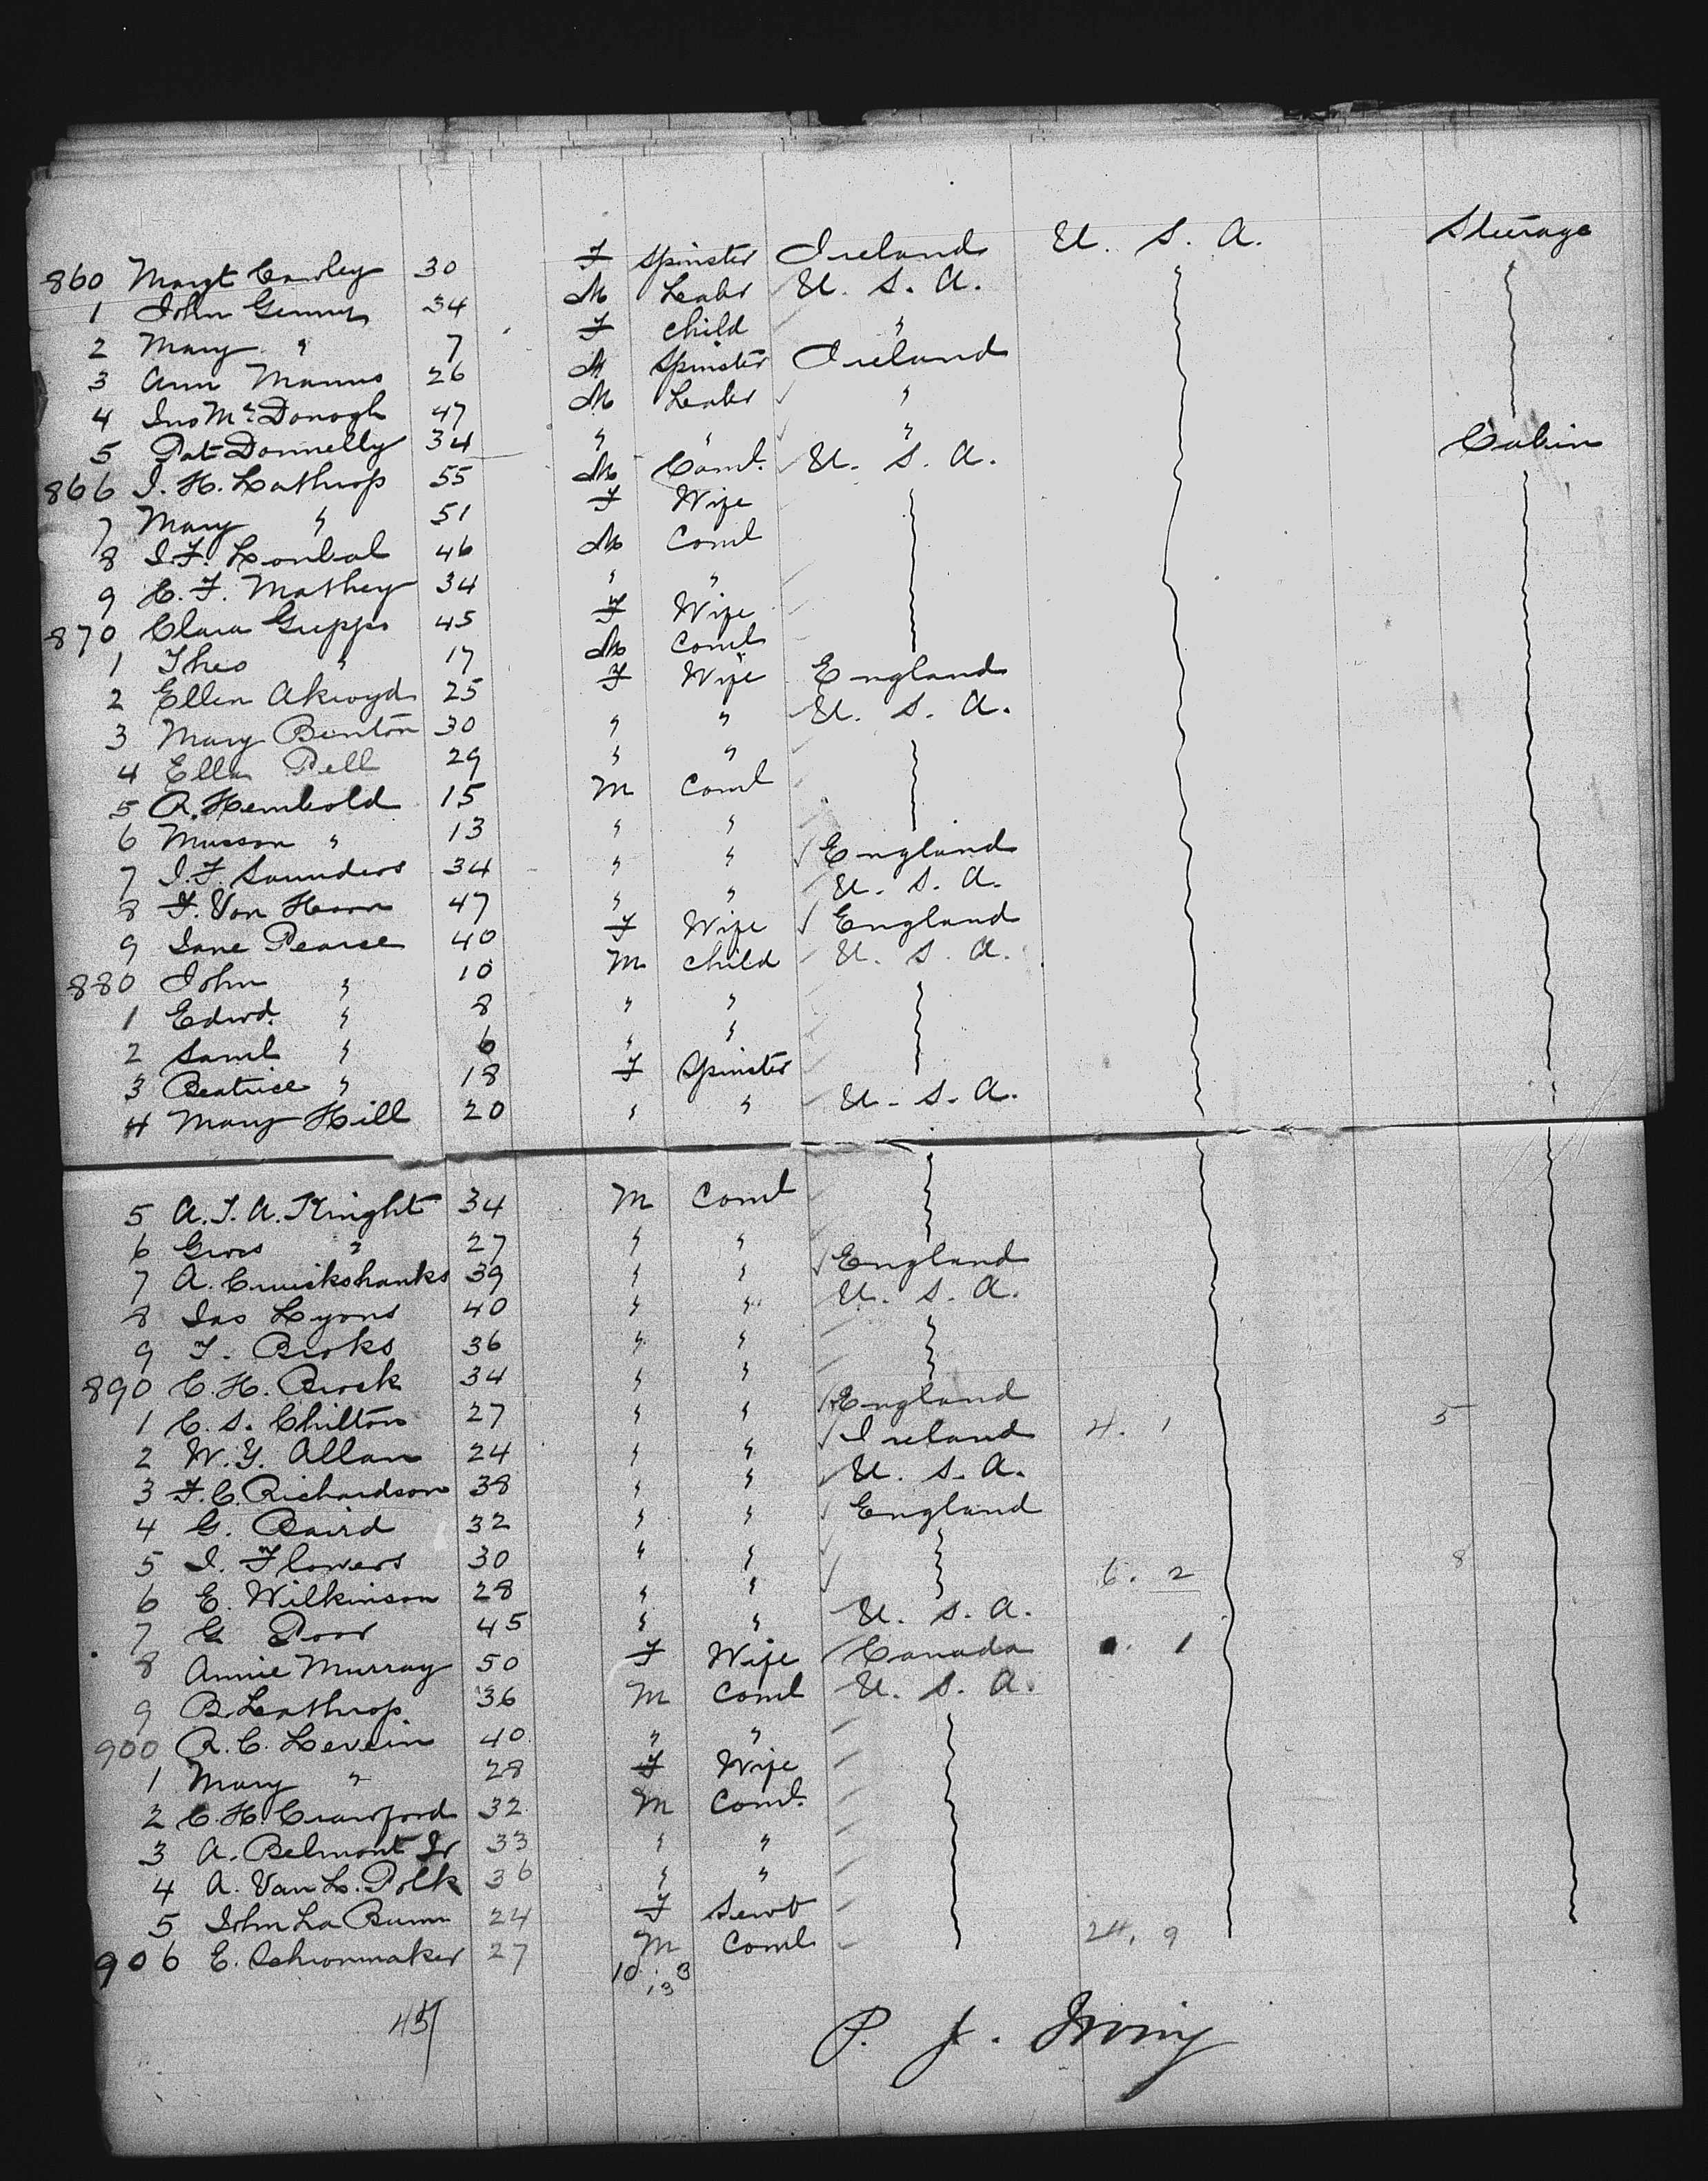 860 Margt Cawley 30 F Spinster Ireland U. S. A. Steerage
1 John 34 M Labr U. S. A.
2 Mary " 7 F Child "
3 Ann Manus 26 M Spinster Ireland
4 Jno McDonogh 47 M Labr "
5 Pat Donnelly 34 " " "
866 J. H. Lathrop 55 M Coml. U. S. A. Cabin
7 Mary " 51 F Wife
8 J. F. 46 M Coml
9 C. F. Mathey 34 " "
870 Clara 45 F Wife
1 Theo " 17 M Coml
2 Ellen Akroyd 25 F Wife England
3 Mary Benton 30 " " U. S. A.
4 Ella Pell 29 " "
5 A. Hembold 15 M Coml
6 Musson " 13 " "
7 J. F. Saunders 34 " " England
8 F. Von Horn 47 " " U. S. A.
9 Jane Pearse 40 F Wife England
880 John " 10 M Child U. S. A.
1 Edwd. " 8 " "
2 Saml " 6 " "
3 Beatrice " 18 F Spinster
4 Mary Hill 20 " " U. S. A.
5 A. J. A. Knight 34 M Coml
6 " 27 " "
7 A. Cruickshanks 39 " " England
8 Jas Lyons 40 " " U. S. A.
9 T. 36 " "
890 C. H. Brock 34 " "
1 C. S. Chilton 27 " " England
2 W. Y. Allan 24 " " Ireland 4. 1 5
3 F. C. Richardson 38 " " U. S. A.
4 G. Baird 32 " " England
5 J. Flowers 30 " "
6 E. Wilkinson 28 " " 6. 2 8
7 G. Poor 45 " " U. S. A.
8 Annie Murray 50 F Wife Canada 1
9 B. Lathrop 36 M Coml U. S. A.
900 R. C. Levein 40 " "
1 Mary " 28 F Wife
2 C. H. Crawford 32 M Coml.
3 A. Belmont Jr 33 " "
4 A. Van L. Polk 36 " "
5 John La 24 F Servt
906 E. Schronmaker 27 M Coml 24. 9
10 3
13
P. J. Irving